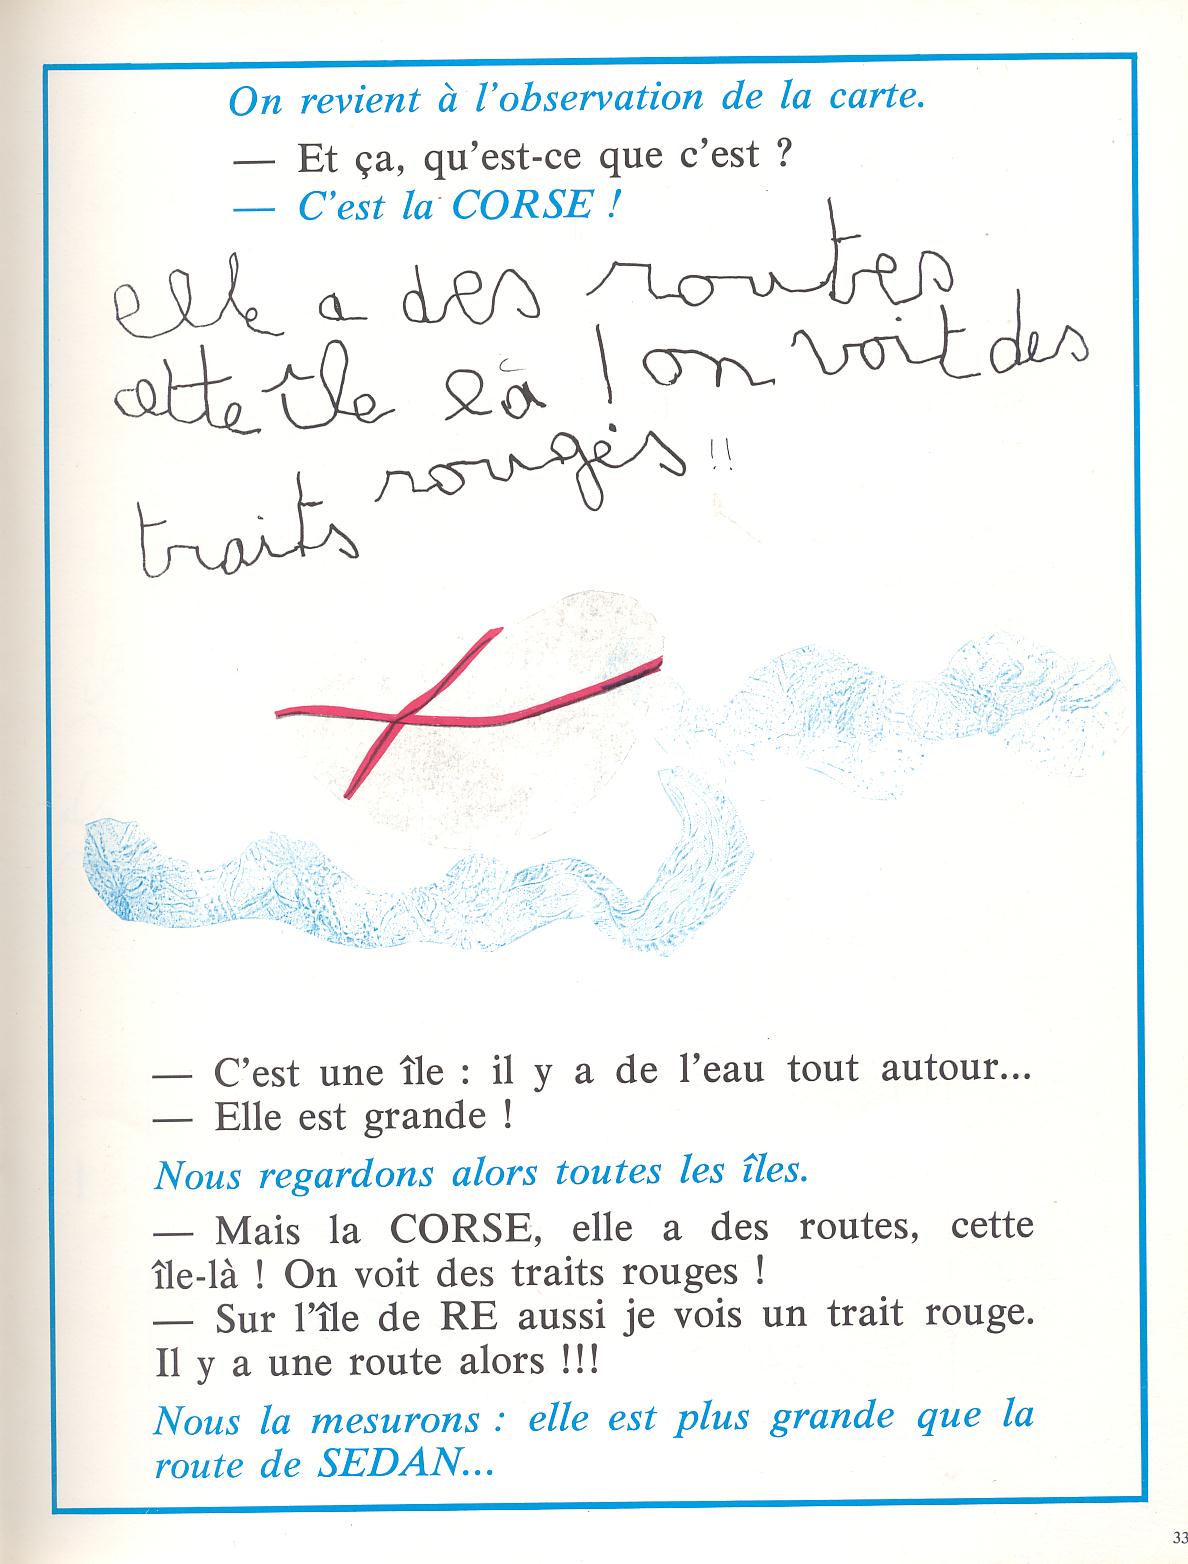 On revient à l'observation de la carte.
— Et ça, qu'est-ce que c'est ?
— C'est la CORSE !
elle a des routes
cette île là ! on voit des
traits rouges !!
— C'est une île : il y a de l'eau tout autour...
— Elle est grande !
Nous regardons alors toutes les îles.
— Mais la CORSE, elle a des routes, cette
île-là ! On voit des traits rouges !
— Sur l'île de RE aussi je vois un trait rouge.
Il y a une route alors !!!
Nous la mesurons : elle est plus grande que la
route de SEDAN...
33